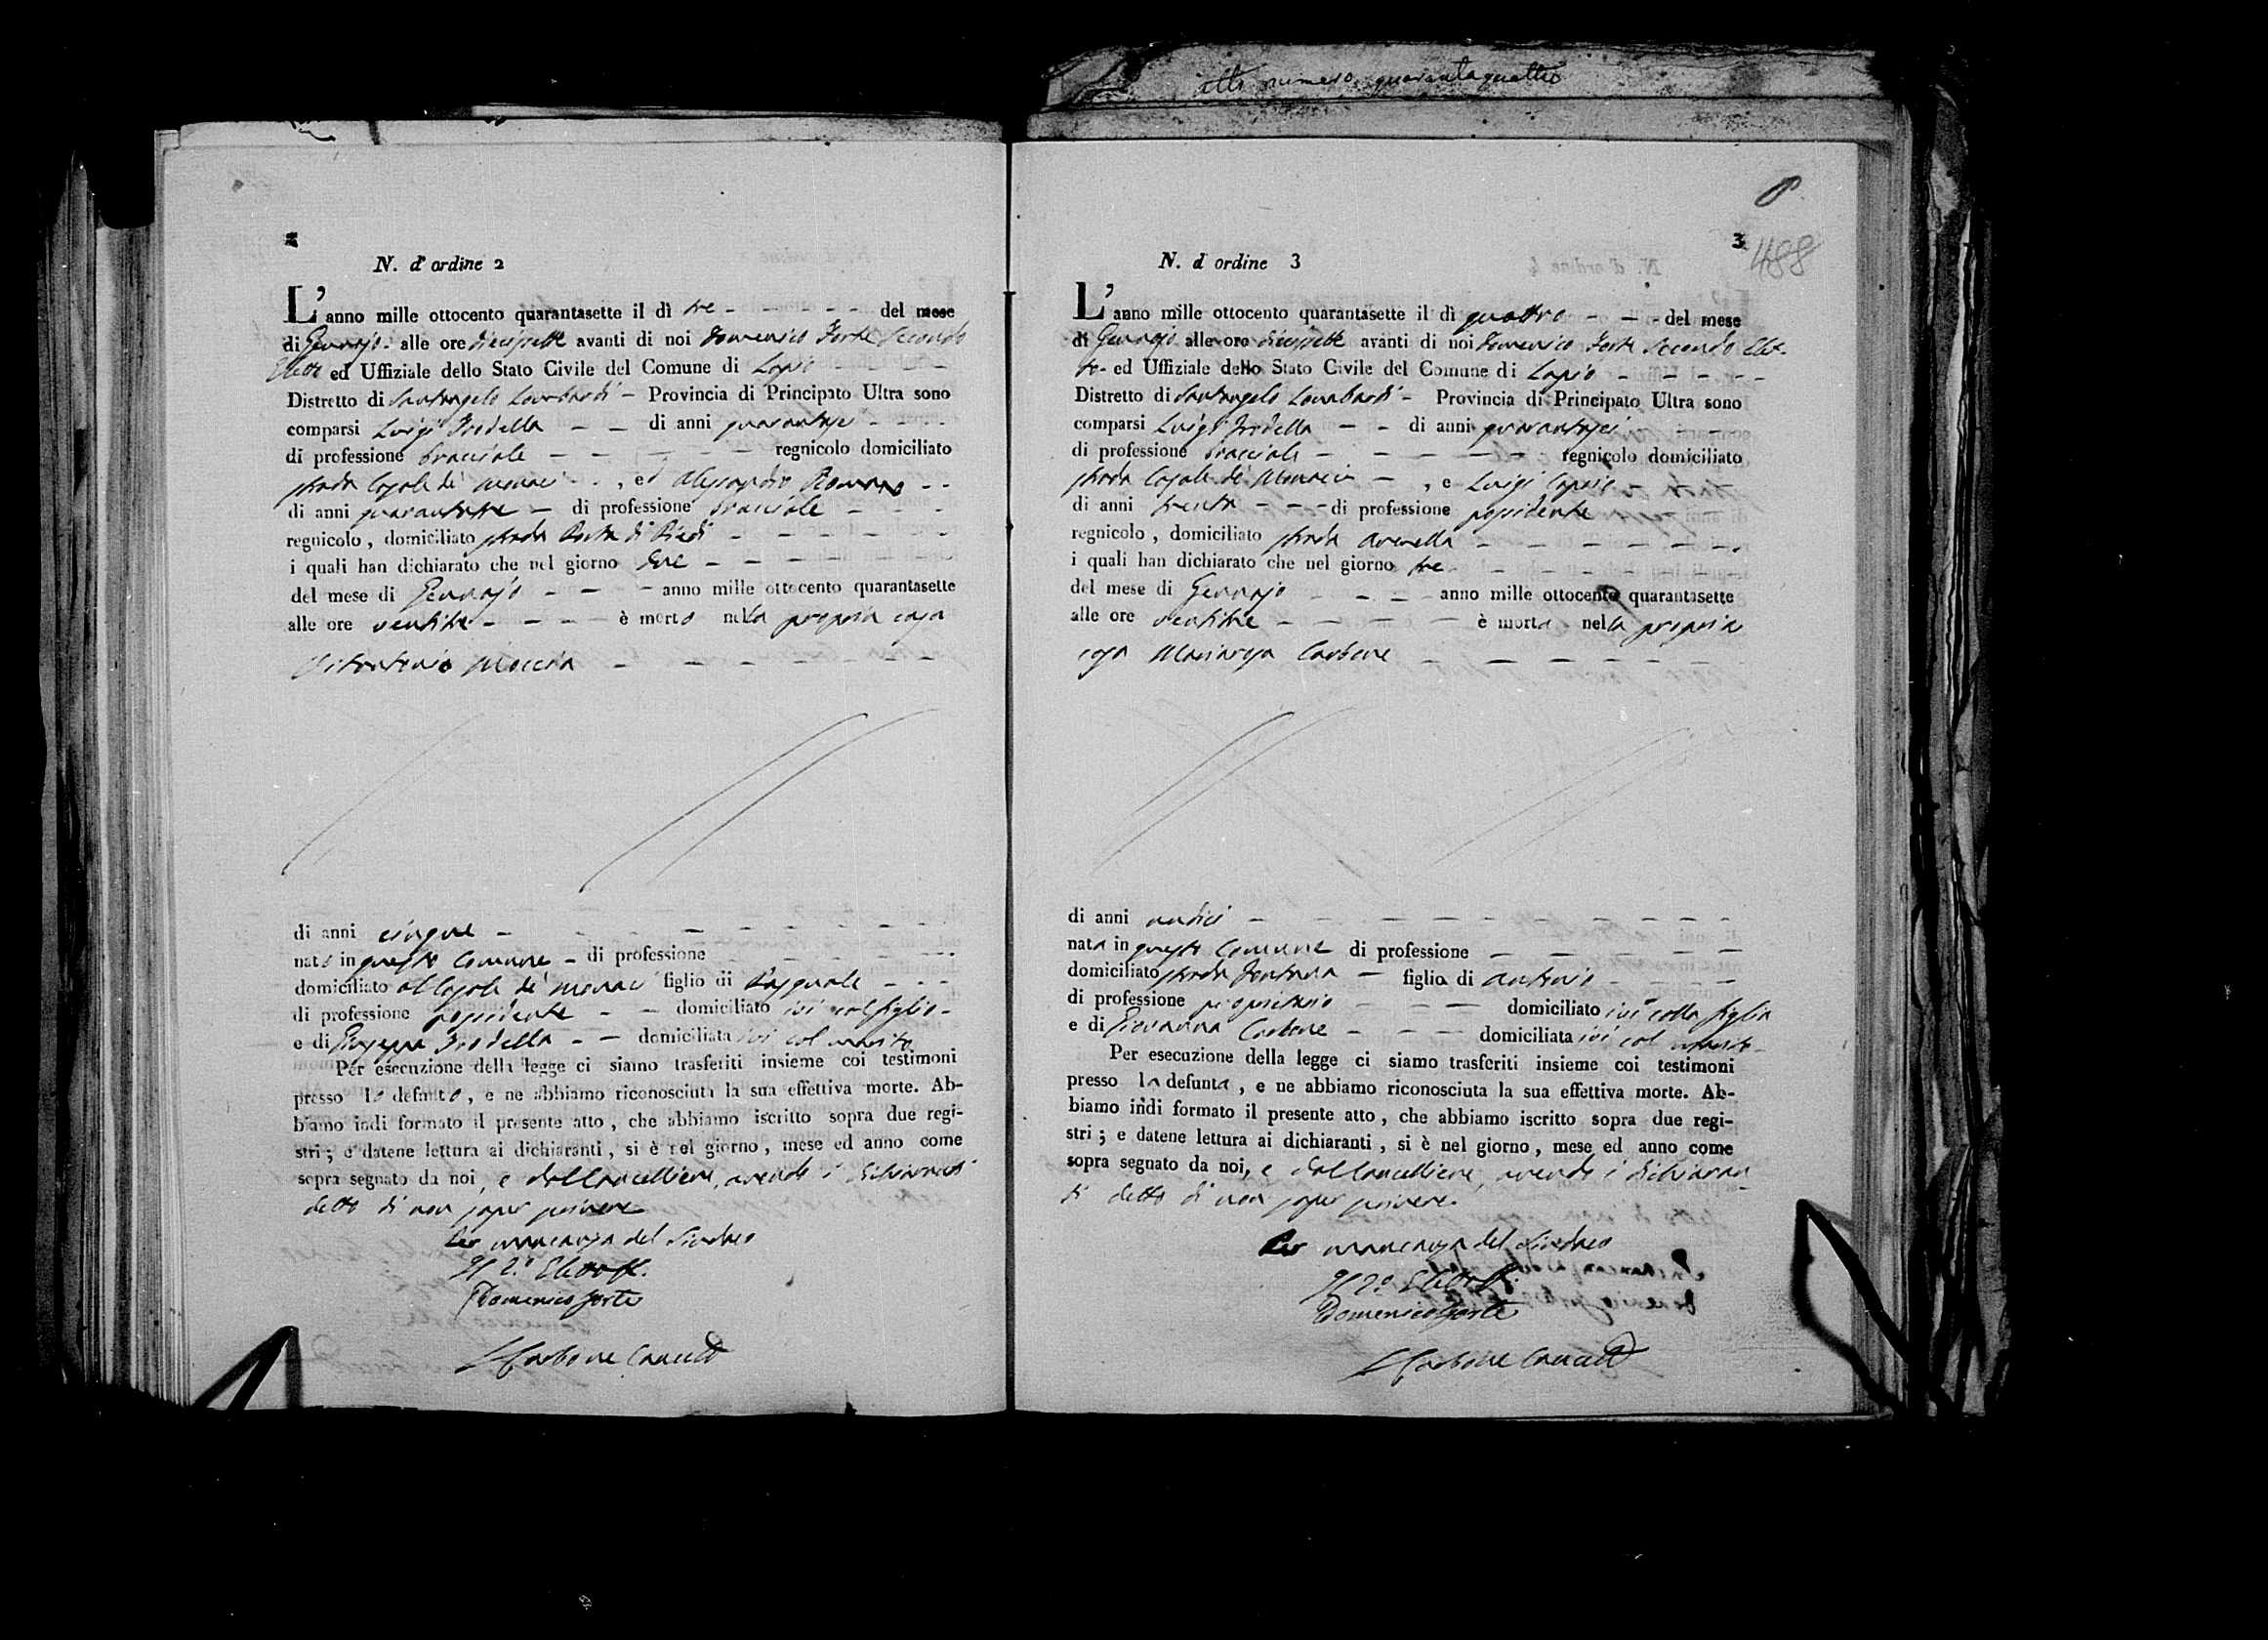 atto numero quarantaquattro
2
N. d'ordine 2
L'anno mille ottocento quarantasette il dì tre - - - - - del mese
di Gennajo - alle ore diecisette avanti di noi Domenico Forte Secondo
Eletto ed Uffiziale dello Stato Civile del Comune di Lapio - - -
Distretto di Santangelo Lombardi - Provincia di Principato Ultra sono
comparsi Luigi - - di anni quarantasei - - -
di professione bracciale - - - - - regnicolo domiciliato
strada Casale de' Monaci - - , ed Alessandro Romano - -
di anni quarantatre - di professione bracciale - - -
regnicolo , domiciliato strada Porta di Piedi - - - - -
i quali han dichiarato che nel giorno due - - - -
del mese di Gennajo - - - anno mille ottocento quarantasette
alle ore ventitre - - - - è morto nella propria casa
Vitantonio Moccia - - - - - - - -
di anni cinque - - - - - - - -
nato in questo Comune - di professione - - - -
domiciliato al Casale de' Monaci figlio di Pasquale - - -
di professione possidente - - domiciliato ivi col figlio -
e di Giuseppa - - domiciliata ivi col marito
Per esecuzione della legge ci siamo trasferiti insieme coi testimoni
presso lo defunto , e ne abbiamo riconosciuta la sua effettiva morte. Ab-
biamo indi formato il presente atto , che abbiamo iscritto sopra due regi-
stri ; e datene lettura ai dichiaranti , si è nel giorno , mese ed anno come
sopra segnato da noi, e dal Cancelliere, avendo i dichiaranti
detto di non saper scrivere
Per mancanza del Sindaco
Il 2.º Eletto ff.
Domenico Forte
Carbone Cancell
3
488
N. d'ordine 3
L'anno mille ottocento quarantasette il dì quattro - - - del mese
di Gennajo alle ore diecisette avanti di noi Domenico Forte Secondo Elet-
to - ed Uffiziale dello Stato Civile del Comune di Lapio - - - - -
Distretto di Santangelo Lombardi - Provincia di Principato Ultra sono
comparsi Luigi - - di anni quarantasei - -
di professione bracciale - - - - - regnicolo domiciliato
strada Casale de' Monaci - , e Luigi Caprio
di anni trenta - - - di professione possidente
regnicolo , domiciliato strada Avenella - - - - - - -
i quali han dichiarato che nel giorno tre - - - - -
del mese di Gennajo - - - - anno mille ottocento quarantasette
alle ore ventitre - - - - - è morta nella propria
casa Mariarosa Carbone - - - - - - -
di anni undici - - - - - - - - - -
nata in questo Comune di professione - - - - -
domiciliato strada Fontana - figlia di Antonio - - - -
di professione proprietario - - - domiciliato ivi colla figlia
e di Giovanna Carbone - - - - domiciliata ivi col marito -
Per esecuzione della legge ci siamo trasferiti insieme coi testimoni
presso la defunta , e ne abbiamo riconosciuta la sua effettiva morte. Ab-
biamo indi formato il presente atto , che abbiamo iscritto sopra due regi-
stri ; e datene lettura ai dichiaranti , si è nel giorno , mese ed anno come
sopra segnato da noi, e dal Cancelliere, avendo i dichiaran-
ti detto di non saper scrivere.
Per mancanza del Sindaco
Il 2º Eletto ff.
Domenico Forte
Carbone Cancell